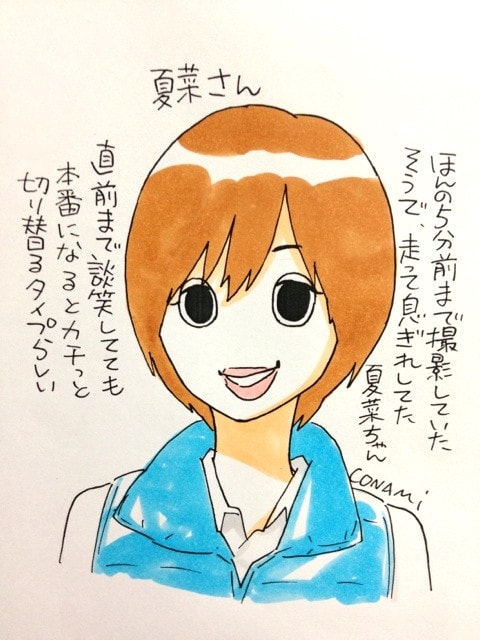 夏菜さん
ほんの5分前まで撮影していた
そうで、走って息ぎれしてた
夏菜ちゃん
直前まで談笑してても
本番になるとカチっと
切り替るタイプらしい
CONAMi